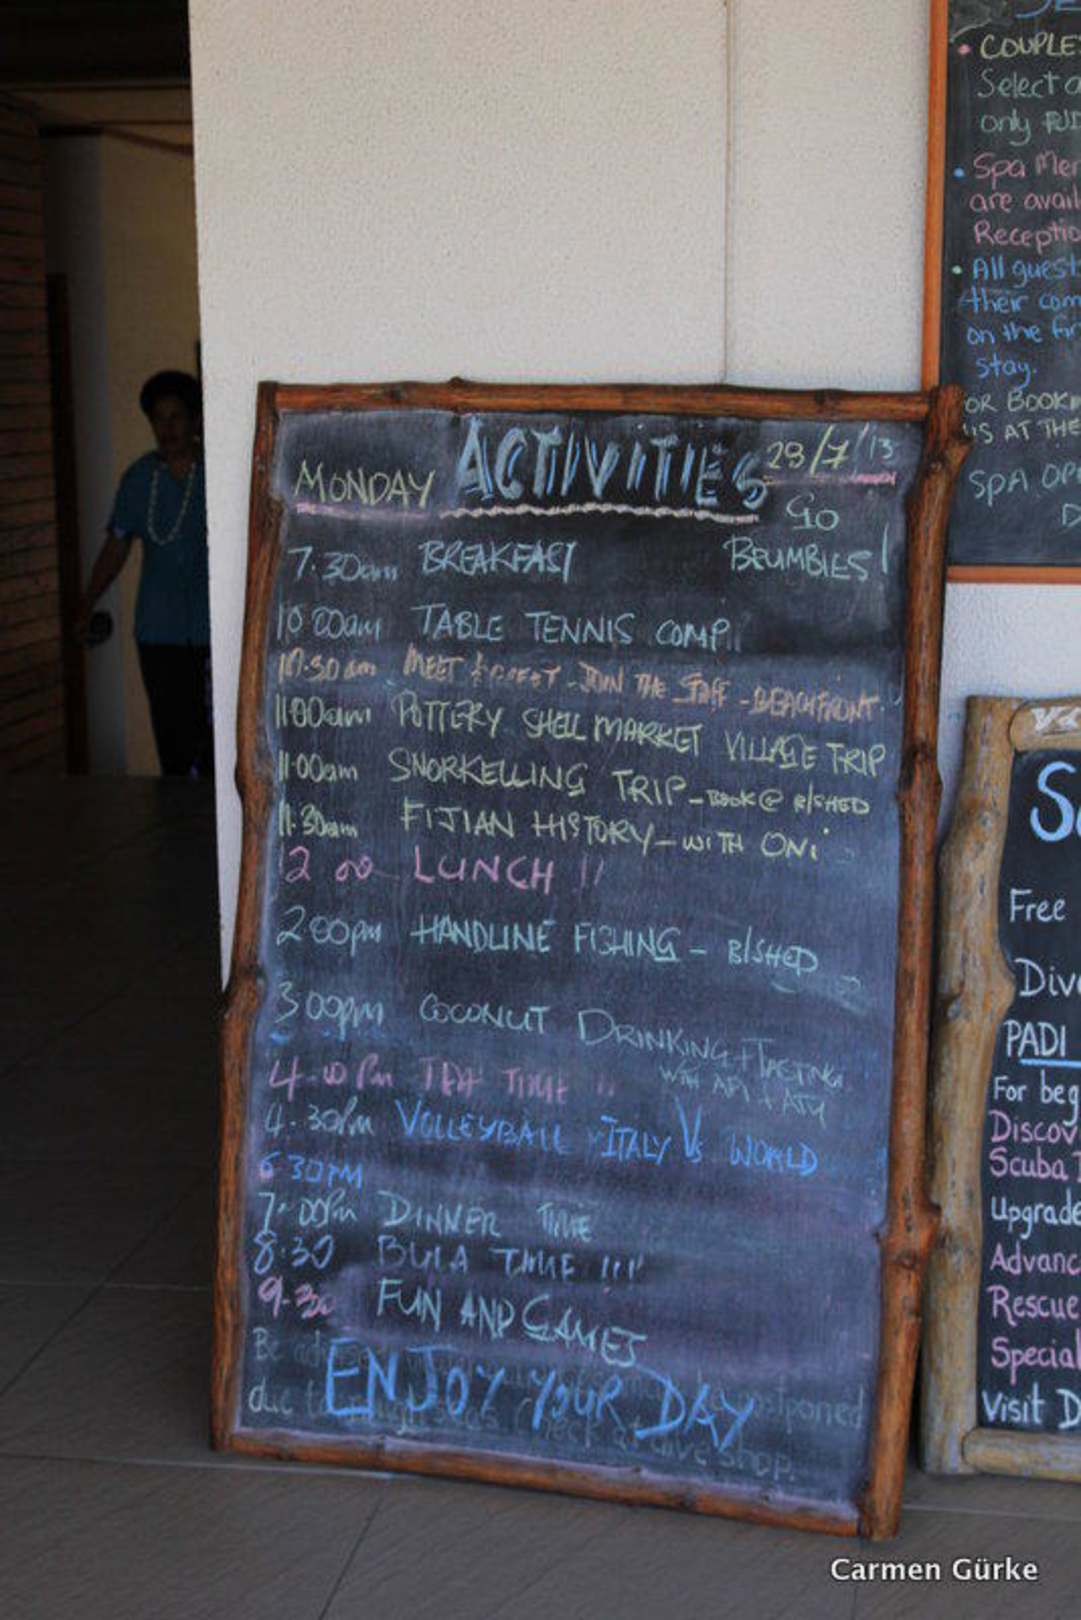 MONDAY ACTIVITIES 29/7/13
GO
BRUMBIES!
7.30am BREAKFAST
10 00am TABLE TENNIS COMP
10.30am MEET & GREET - JOIN THE STAFF - BEACHFRONT
11 00am POTTERY SHELL MARKET VILLAGE TRIP
11 00am SNORKELLING TRIP - BOOK @ B/SHED
11.30am FIJIAN HISTORY - WITH ONI
12 00 LUNCH !!
2 00pm HANDLINE FISHING - B/SHED
3 00pm COCONUT DRINKING + TASTING
WITH API + ATU
4.00 Pm TEA TIME !!
4.30Pm VOLLEYBALL ITALY Vs WORLD
6 30PM
7.00Pm DINNER TIME
8.30 BULA TIME !!!
9.30 FUN AND GAMES
ENJOY YOUR DAY
Be
postponed
due to seas check at dive shop.
COUPLE
Select
only
Spa Men
are avail
Receptio
All guest
their com
on the fir
stay.
OR BOOK
US AT THE
SPA OPE
D
Free
Dive
PADI
For beg
Discov
Scuba
Upgrade
Advanc
Rescue
Special
Visit D
Carmen Gürke